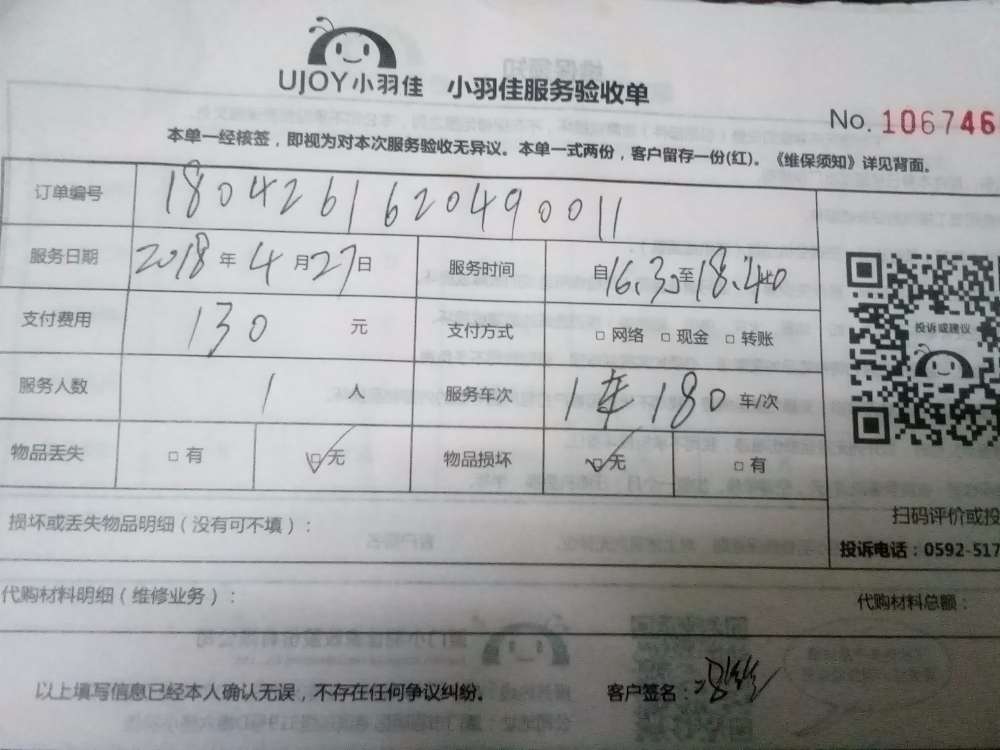 UJOY小羽佳 小羽佳服务验收单
No. 106746
本单一经核签，即视为对本次服务验收无异议。本单一式两份，客户留存一份(红)。《维保须知》详见背面。
订单编号 1804261620490011
服务日期 2018年4月27日 服务时间 自16.30至18.40
支付费用 130 元 支付方式 □ 网络 □ 现金 □ 转账
服务人数 1 人 服务车次 1车180 车/次
物品丢失 □ 有 ☑ 无 物品损坏 ☑ 无 □ 有
投诉或建议
扫码评价或投
损坏或丢失物品明细（没有可不填）：
投诉电话：0592-517
代购材料明细（维修业务）： 代购材料总额：
以上填写信息已经本人确认无误，不存在任何争议纠纷。 客户签名：